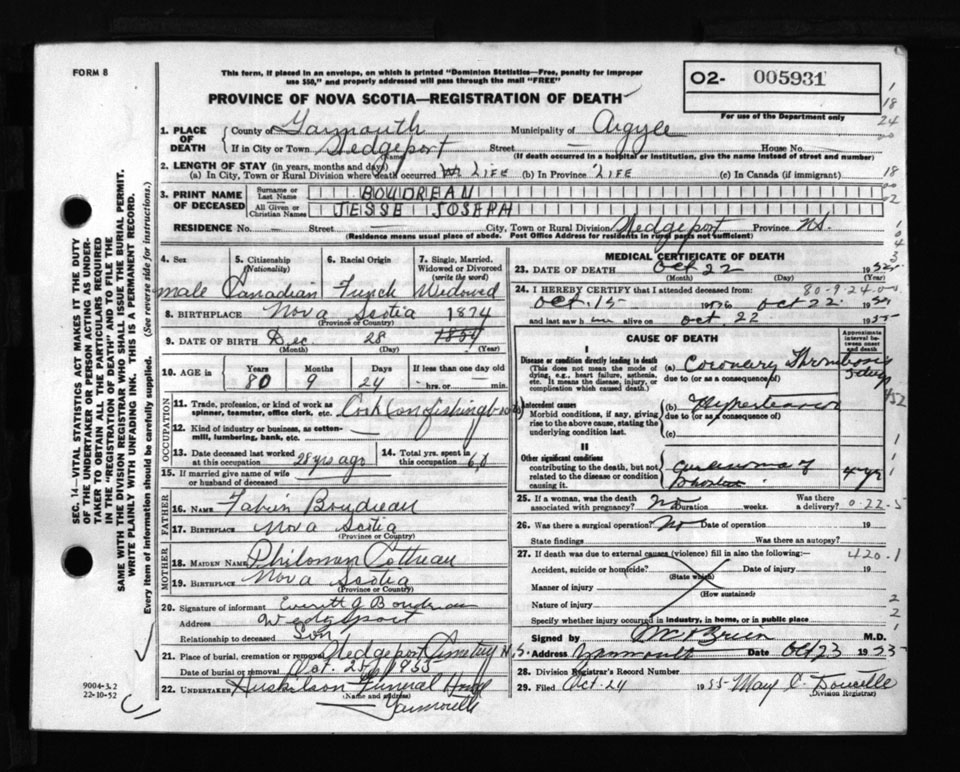 FORM 8
This form, if placed in an envelope, on which is printed "Dominion Statistics—Free, penalty for improper
use $50," and properly addressed will pass through the mail "FREE"
O2- 005931
For use of the Department only
PROVINCE OF NOVA SCOTIA—REGISTRATION OF DEATH
1. PLACE OF DEATH { County of Yarmouth Municipality of Argyle
If in City or Town Wedgeport Street — House No.
(Name) (If death occurred in a hospital or institution, give the name instead of street and number)
2. LENGTH OF STAY (in years, months and days)
(a) In City, Town or Rural Division where death occurred LIFE (b) In Province LIFE (c) In Canada (if immigrant)
3. PRINT NAME OF DECEASED { Surname or Last Name BOUDREAU
All Given or Christian Names JESSE JOSEPH
RESIDENCE No. — Street — City, Town or Rural Division Wedgeport Province N.S.
(Residence means usual place of abode. Post Office Address for residents in rural parts not sufficient)
4. Sex 5. Citizenship (Nationality) 6. Racial Origin 7. Single, Married, Widowed or Divorced (write the word)
male Canadian French Widowed
8. BIRTHPLACE Nova Scotia 1874
(Province or Country)
9. DATE OF BIRTH Dec. 28
(Month) (Day) (Year)
10. AGE in { Years Months Days If less than one day old
80 9 24 hrs. or min.
OCCUPATION
11. Trade, profession, or kind of work as spinner, teamster, office clerk, etc. Cook (on fishing boats)
12. Kind of industry or business, as cotton-mill, lumbering, bank, etc. —
13. Date deceased last worked at this occupation 28 yrs ago 14. Total yrs. spent in this occupation
15. If married give name of wife or husband of deceased
FATHER
16. Name Boudreau
17. Birthplace Nova Scotia
(Province or Country)
MOTHER
18. MAIDEN NAME Pottreau
19. BIRTHPLACE Nova Scotia
(Province or Country)
20. Signature of informant Everett J Boudreau
Address Wedgeport
Relationship to deceased Son
21. Place of burial, cremation or removal Wedgeport Cemetery N.S.
Date of burial or removal Oct. 25, 1955
22. UNDERTAKER Huskilson Funeral Home
(Name and address)
Yarmouth
MEDICAL CERTIFICATE OF DEATH
23. DATE OF DEATH Oct 22 1955
(Month) (Day) (Year)
24. I HEREBY CERTIFY that I attended deceased from: 80-9-24-00
Oct. 15 to Oct 22 1955
and last saw him alive on Oct. 22 1955
CAUSE OF DEATH
Approximate interval between onset and death
I
Disease or condition directly leading to death
(This does not mean the mode of dying, e.g., heart failure, asthenia, etc. It means the disease, injury, or complication which caused death.)
(a) Coronary Thrombosis
due to (or as a consequence of) 5 days
Antecedent causes
Morbid conditions, if any, giving rise to the above cause, stating the underlying condition last.
(b) Hypertension
due to (or as consequence of)
(c)
II
Other significant conditions
contributing to the death, but not related to the disease or condition causing it.
Carcinoma of
4 yr
25. If a woman, was the death associated with pregnancy? No Duration weeks. Was there a delivery? 0-22-5
26. Was there a surgical operation? No Date of operation 19
State findings Was there an autopsy?
27. If death was due to external causes (violence) fill in also the following:— 420-1
Accident, suicide or homicide? Date of injury 19
(State which)
Manner of injury
(How sustained)
Nature of injury
Specify whether injury occurred in industry, in home, or in public place
Signed by O'Brien M.D.
Address Yarmouth Date Oct 23 1955
28. Division Registrar's Record Number
29. Filed Oct. 24 1955 Mary C. Doucette
(Division Registrar)
SEC. 14—VITAL STATISTICS ACT MAKES IT THE DUTY
OF THE UNDERTAKER OR PERSON ACTING AS UNDER-
TAKER TO OBTAIN ALL THE PARTICULARS REQUIRED
IN THE "REGISTRATION OF DEATH" AND TO FILE THE
SAME WITH THE DIVISION REGISTRAR WHO SHALL ISSUE THE BURIAL PERMIT.
WRITE PLAINLY WITH UNFADING INK. THIS IS A PERMANENT RECORD.
Every item of information should be carefully supplied. (See reverse side for instructions.)
9004-3.2
22-10-52